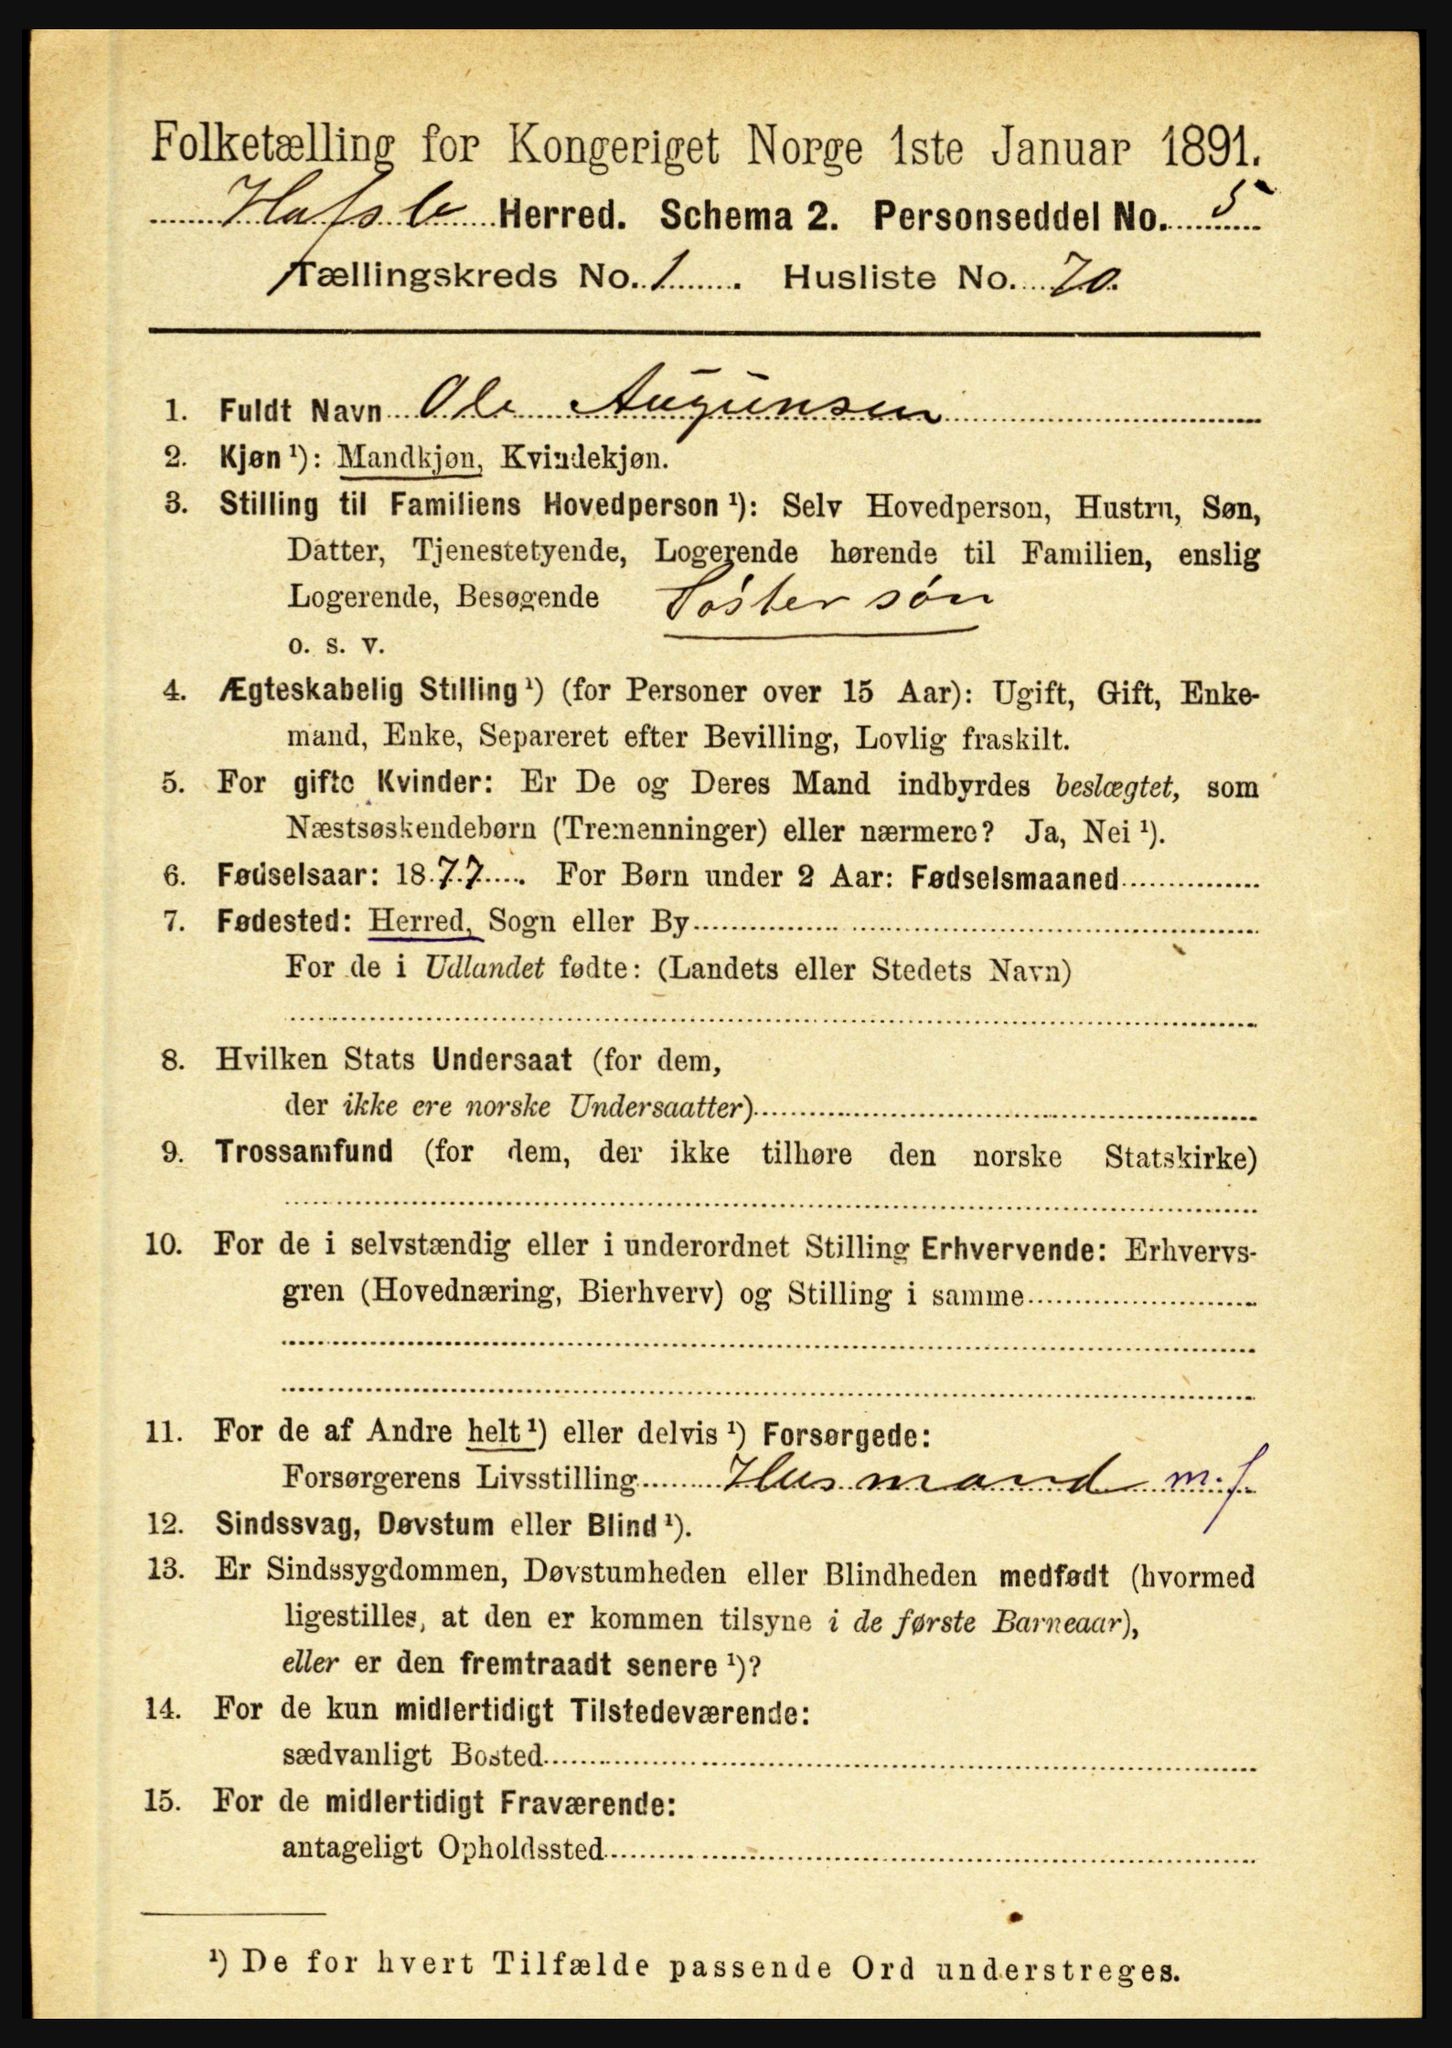 Folketælling for Kongeriget Norge 1ste Januar 1891.
Hafslo Herred. Schema 2. Personseddel No. 5
Tællingskreds No. 1. Husliste No. 70.
1. Fuldt Navn Ole Augunsen
2. Kjøn ¹): Mandkjøn, Kvindekjøn.
3. Stilling til Familiens Hovedperson ¹): Selv Hovedperson, Hustru, Søn,
Datter, Tjenestetyende, Logerende hørende til Familien, enslig
Logerende, Besøgende Søstersøn
o. s. v.
4. Ægteskabelig Stilling ¹) (for Personer over 15 Aar): Ugift, Gift, Enke-
mand, Enke, Separeret efter Bevilling, Lovlig fraskilt.
5. For gifte Kvinder: Er De og Deres Mand indbyrdes beslægtet, som
Næstsøskendebørn (Tremenninger) eller nærmere? Ja, Nei ¹).
6. Fødselsaar: 1877. For Børn under 2 Aar: Fødselsmaaned
7. Fødested: Herred, Sogn eller By
For de i Udlandet fødte: (Landets eller Stedets Navn)
8. Hvilken Stats Undersaat (for dem,
der ikke ere norske Undersaatter)
9. Trossamfund (for dem, der ikke tilhøre den norske Statskirke)
10. For de i selvstændig eller i underordnet Stilling Erhvervende: Erhvervs-
gren (Hovednæring, Bierhverv) og Stilling i samme
11. For de af Andre helt ¹) eller delvis ¹) Forsørgede:
Forsørgerens Livsstilling Husmand m. j.
12. Sindssvag, Døvstum eller Blind ¹).
13. Er Sindssygdommen, Døvstumheden eller Blindheden medfødt (hvormed
ligestilles, at den er kommen tilsyne i de første Barneaar),
eller er den fremtraadt senere ¹)?
14. For de kun midlertidigt Tilstedeværende:
sædvanligt Bosted
15. For de midlertidigt Fraværende:
antageligt Opholdssted
¹) De for hvert Tilfælde passende Ord understreges.